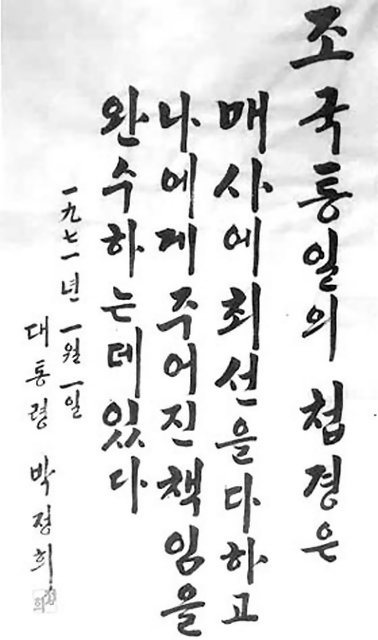 조국통일의 첩경은
매사에 최선을 다하고
나에게 주어진 책임을
완수하는데 있다
一九七一년 一월 一일
대통령 박정희